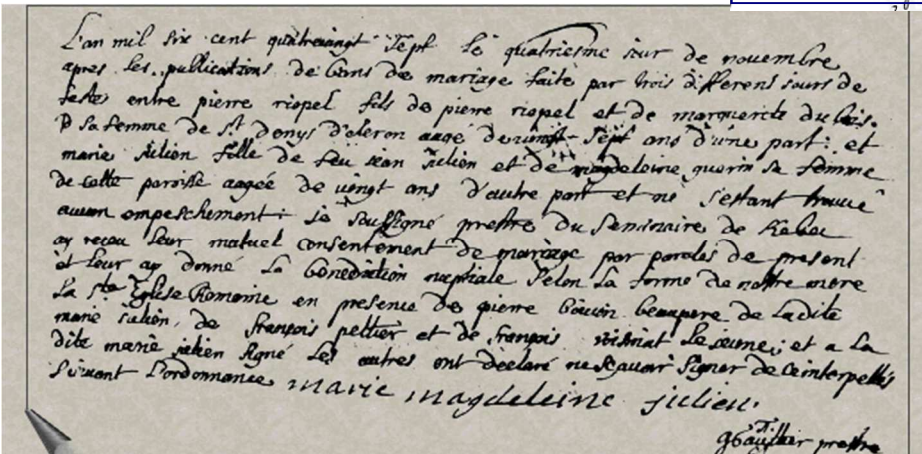 L'an mil six cent quatrevingt Sept le quatriesme jour de novembre
apres les publications de bans de mariage faite par trois differens jours de
feste entre pierre riopel fils de pierre riopel et de marguerite du bois
sa femme de St denys d'oleron aagé de vingt Sept ans d'une part: et
marie Julien fille de feu jean Julien et de magdeleine guerin sa femme
de cette paroisse aagée de vingt ans d'autre part et ne s'estant trouvé
aucun empeschement je soussigné prestre du Seminaire de Kebec
ay receu leur mutuel consentement de mariage par paroles de present
et leur ay donné la benediction nuptiale selon la forme de nostre mere
la Ste Eglise Romaine en presence de pierre bouvin beaupere de ladite
marie julien, de françois peltier et de françois le jeune; et a la
dite marie julien signé les autres ont declaré ne sçavoir signer de ce interpellés
suivant l'ordonnance marie magdeleine julien.
prestre